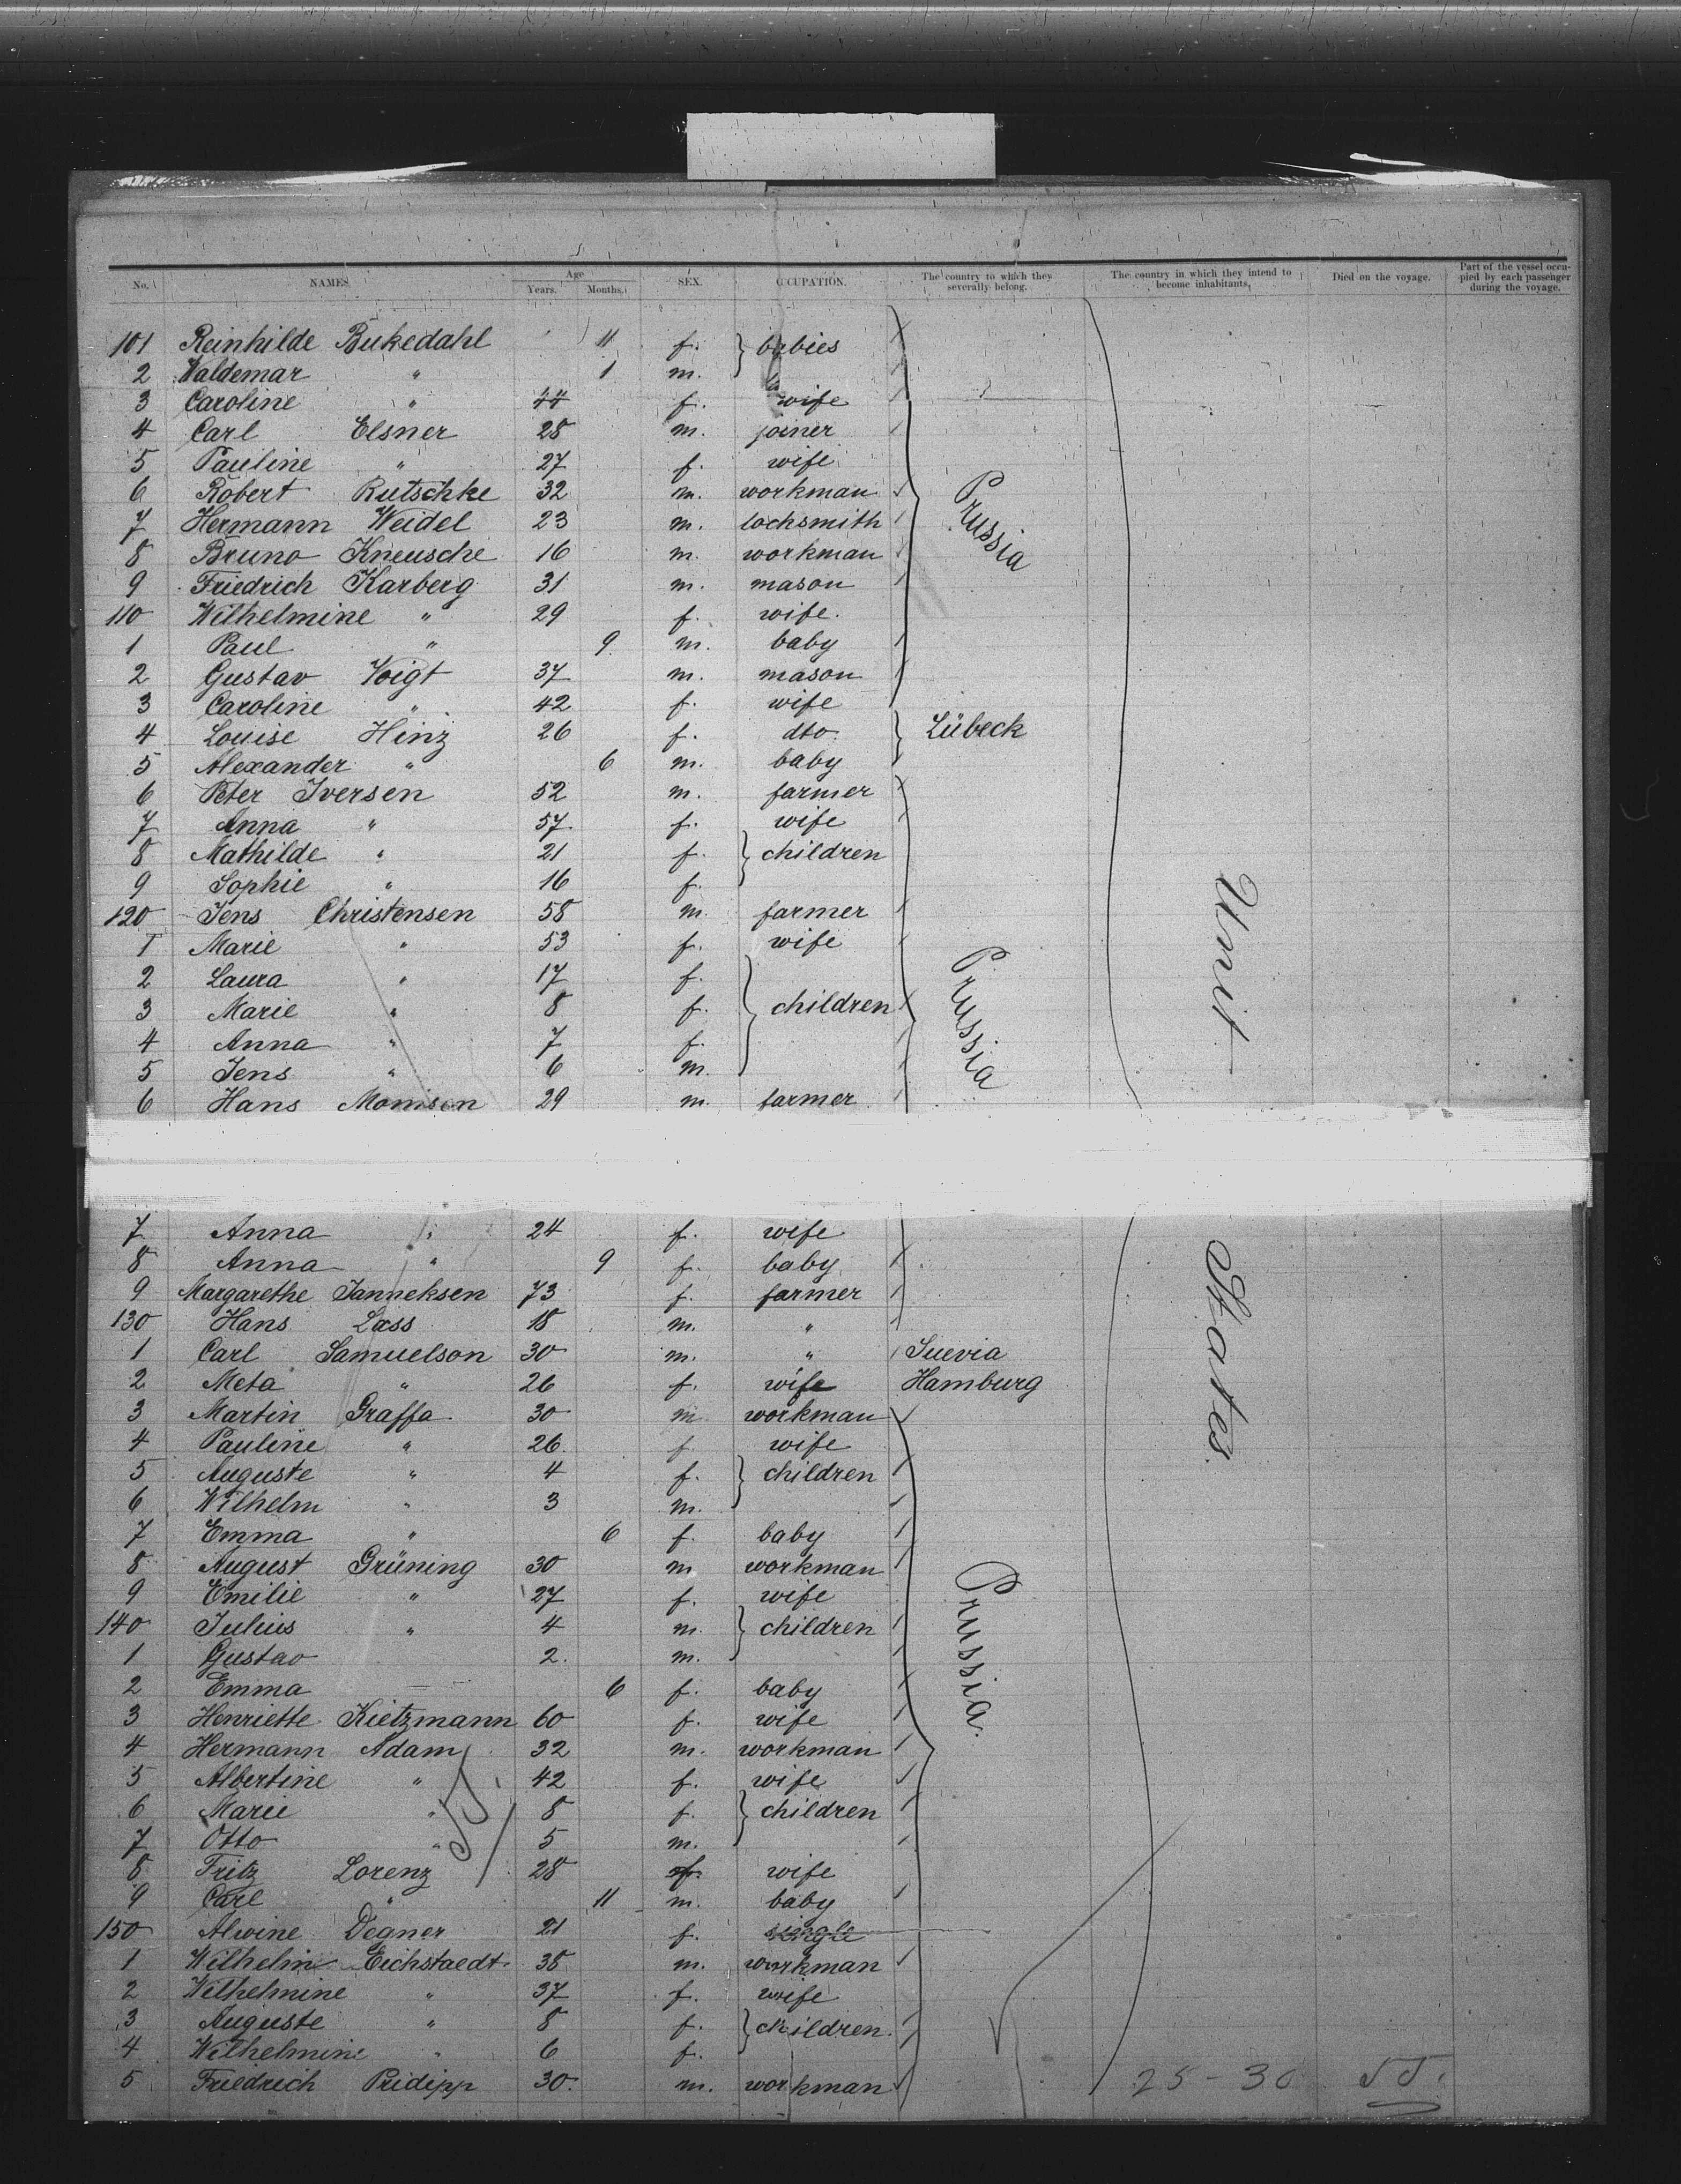 No. NAMES Age Years. Months. SEX. OCCUPATION. The country to which they severally belong. The country in which they intend to become inhabitants. Died on the voyage. Part of the vessel occupied by each passenger during the voyage.
101 Reinhilde Bukedahl 11 f. } babies
2 Waldemar " 1 m.
3 Caroline " 44 f. wife
4 Carl Elsner 28 m. joiner
5 Pauline " 27 f. wife
6 Robert Rutschke 32 m. workman Prussia
7 Hermann Weidel 23 m. locksmith
8 Bruno Kneusche 16 m. workman
9 Friedrich Karberg 31 m. mason
110 Wilhelmine " 29 f. wife.
1 Paul " 9 m. baby
2 Gustav Voigt 37 m. mason
3 Caroline " 42 f. wife
4 Louise Hinz 26 f. dto. } Lübeck
5 Alexander " 6 m. baby
6 Peter Iversen 52 m. farmer
7 Anna " 57 f. wife
8 Mathilde " 21 f. } children
9 Sophie " 16 f.
120 Jens Christensen 58 m. farmer
1 Marie " 53 f. wife
2 Laura " 17 f.
3 Marie " 8 f. } children Prussia
4 Anna " 7 f.
5 Jens " 6 m.
6 Hans Monisen 29 m. farmer
United States
7 Anna " 24 f. wife
8 Anna " 9 f. baby
9 Margarethe Janneksen 73 f. farmer
130 Hans Lass 18 m. "
1 Carl Samuelson 30 m. " Suevia
2 Meta " 26 f. wife Hamburg
3 Martin Graffa 30 m workman
4 Pauline " 26 f. wife
5 Auguste " 4 f. } children
6 Wilhelm " 3 m.
7 Emma " 6 f. baby
8 August Grüning 30 m workman
9 Emilie " 27 f. wife
140 Julius " 4 m. } children Prussia.
1 Gustav 2. m.
2 Emma 6 f. baby
3 Henriette Kietzmann 60 f. wife
4 Hermann Adam 32 m. workman
5 Albertine " 42 f. wife
6 Marie " 8 f. } children
7 Otto " 5 m.
8 Fritz Lorenz 28 f. wife
9 Carl " 11 m. baby
150 Alwine Degner 21 f. single
1 Wilhelm Eichstaedt 38 m. workman
2 Wilhelmine " 37 f. wife
3 Auguste " 8 f. } children.
4 Wilhelmine " 6 f.
5 Friedrich Pridipp 30. m. workman
25-30